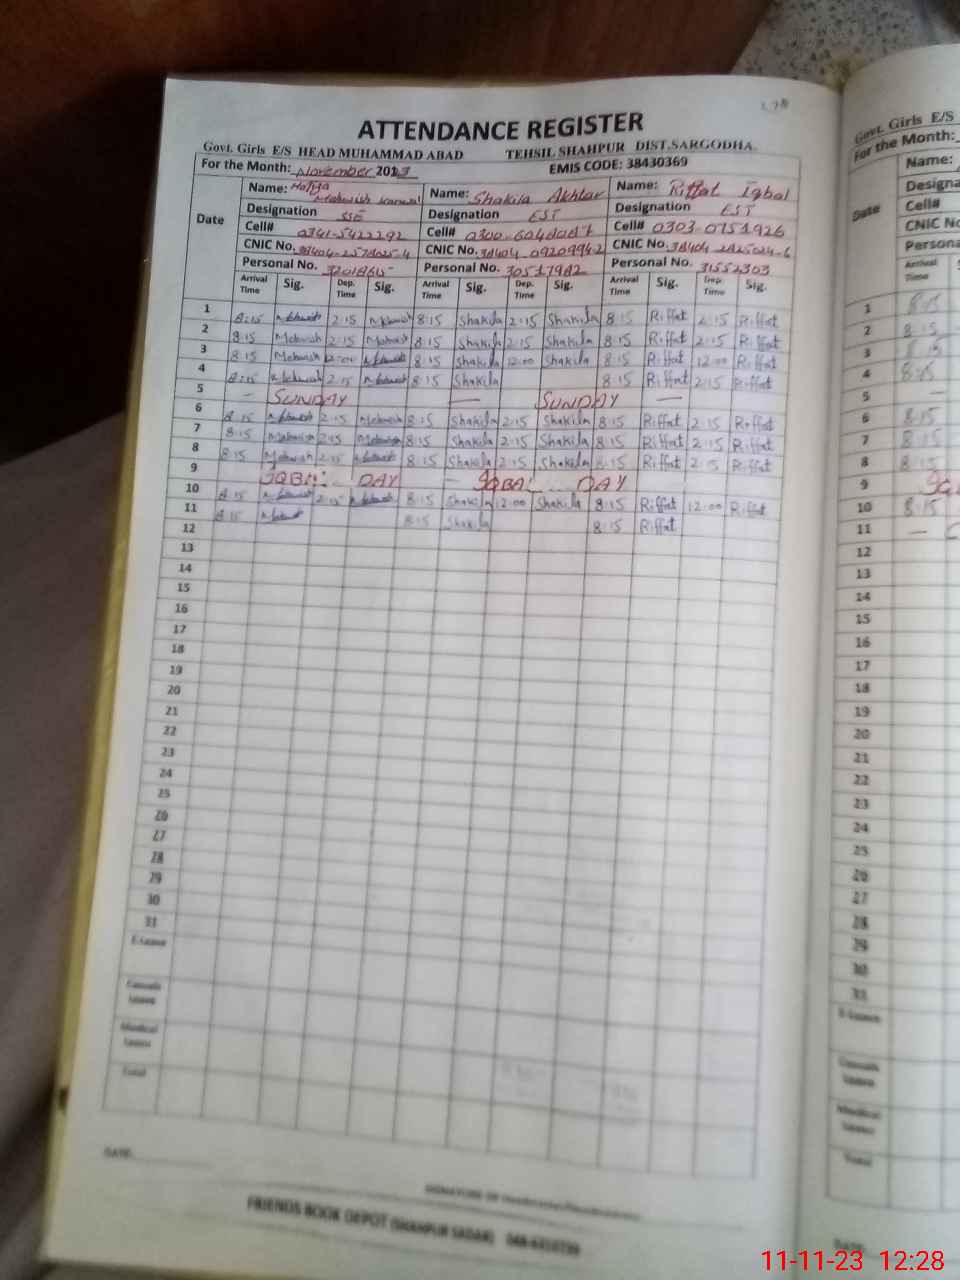 ATTENDANCE REGISTER
Govt. Girls E/S HEAD MUHAMMAD ABAD TEHSIL SHAHPUR DIST.SARGODHA.
For the Month: November 2023 EMIS CODE: 38430369
Name: Mehwish Kanwal Name: Shakila Akhtar Name: Riffat Iqbal
Date
Designation SSE Designation EST Designation EST
Cell# 0341-5422292 Cell# Cell# 0303-0751926
CNIC No. CNIC No. 38404-0209994-2 CNIC No. 38404-2825024-6
Personal No. Personal No. 30517982 Personal No. 31552303
Arrival Time Sig. Dep. Time Sig. Arrival Time Sig. Dep. Time Sig. Arrival Time Sig. Dep. Time Sig.
1 8:15 Mehwish 2:15 Mehwish 8:15 Shakila 2:15 Shakila 8:15 Riffat 2:15 Riffat
2 8:15 Mehwish 2:15 Mehwish 8:15 Shakila 2:15 Shakila 8:15 Riffat 2:15 Riffat
3 8:15 Mehwish 12:00 Mehwish 8:15 Shakila 12:00 Shakila 8:15 Riffat 12:00 Riffat
4 8:15 Mehwish 2:15 Mehwish 8:15 Shakila 8:15 Riffat 2:15 Riffat
5 — SUNDAY — SUNDAY —
6 8:15 Mehwish 2:15 Mehwish 8:15 Shakila 2:15 Shakila 8:15 Riffat 2:15 Riffat
7 8:15 Mehwish 2:15 Mehwish 8:15 Shakila 2:15 Shakila 8:15 Riffat 2:15 Riffat
8 8:15 Mehwish 2:15 Mehwish 8:15 Shakila 2:15 Shakila 8:15 Riffat 2:15 Riffat
9 IQBAL DAY — IQBAL DAY
10 8:15 Mehwish 2:15 Mehwish 8:15 Shakila 12:00 Shakila 8:15 Riffat 12:00 Riffat
11 8:15 Mehwish 8:15 Shakila 8:15 Riffat
12
13
14
15
16
17
18
19
20
21
22
23
24
25
26
27
28
29
30
31
E-Leave
Casuals Leave
Medical Leave
Total
DATE:
SIGNATURE OF
FRIENDS BOOK DEPOT (SHAHPUR SADAR)
Govt. Girls E/S
For the Month:
Name:
Date
Designa
Cell#
CNIC No
Persona
Arrival Time
1 8:15
2 8:15
3 8:15
4 8:15
5 —
6 8:15
7 8:15
8 8:15
9
10 8:15
11 —
12
13
14
15
16
17
18
19
20
21
22
23
24
25
26
27
28
29
30
31
E-Leave
Casuals Leave
Medical Leave
Total
DATE:
11-11-23 12:28